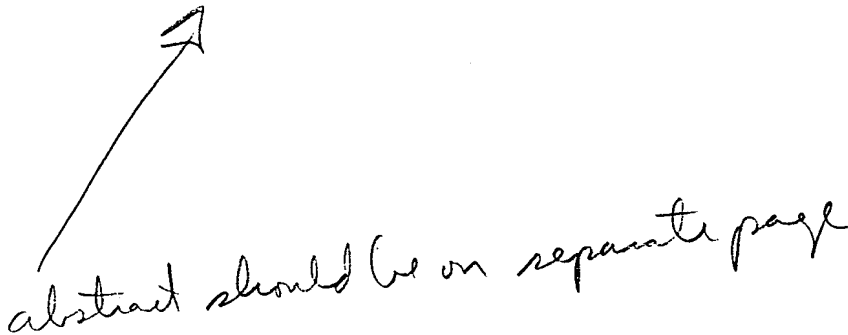 abstract should be on separate page